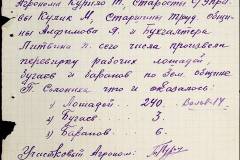 Агронома Курило Т. Старосты Управы
Кулик М, Старшины труд. общи-
ны Алдимова Я. и Бухгалтера
Литвина п. сего числа произвели
перевирку рабочих лошадей,
бугаев и баранов по всем общине
П Слонивка что и оказалось:
Лошадей. 240, Волов-14
Бугаев. 3.
Баранов. 6.
Участковый Агроном: